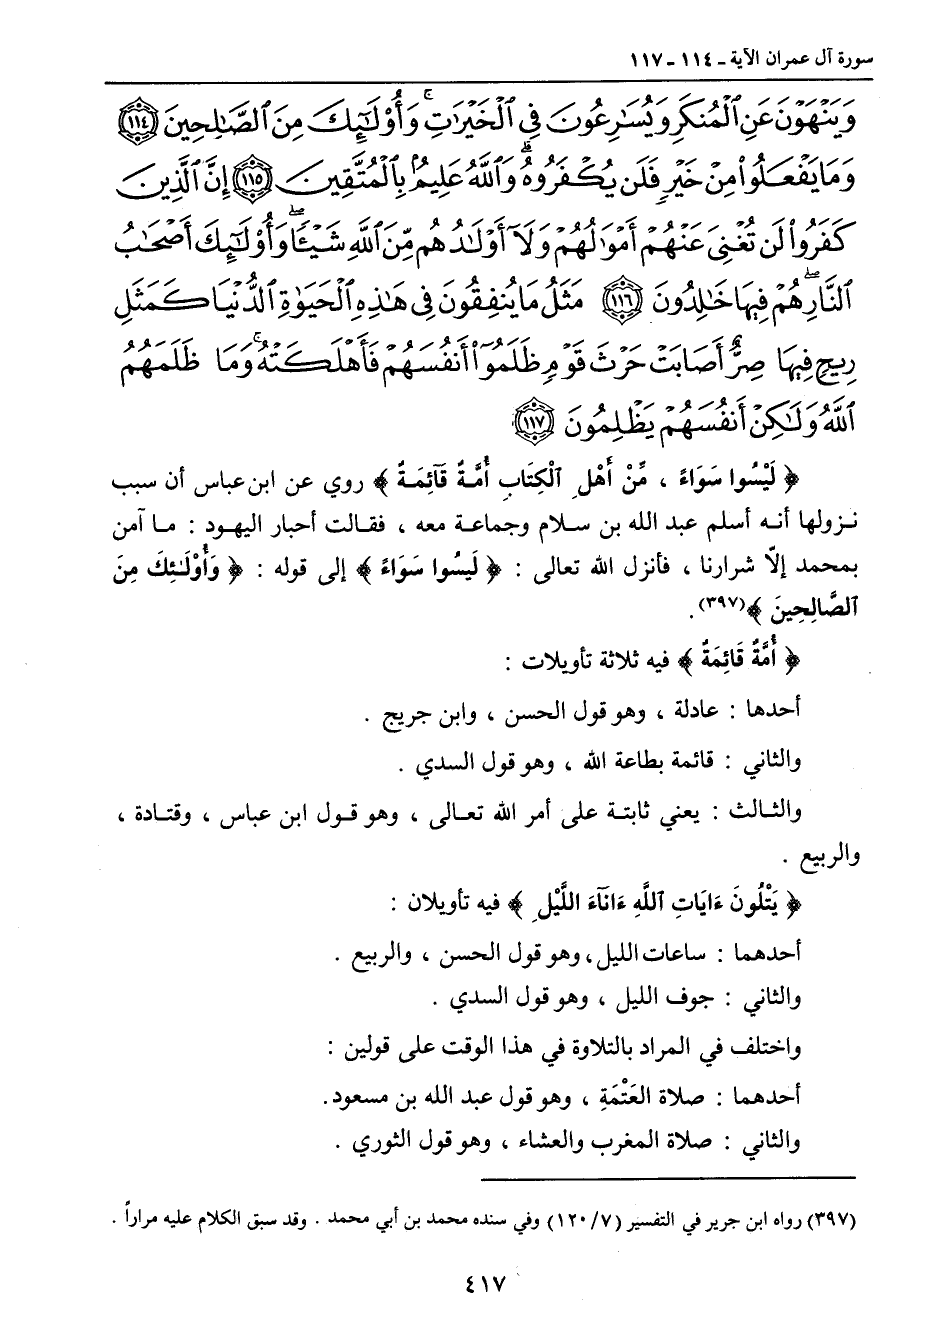 سورة آل عمران الآية ـ ١١٤ ـ ١١٧
وَيَنْهَوْنَ عَنِ ٱلْمُنكَرِ وَيُسَٰرِعُونَ فِى ٱلْخَيْرَٰتِ ۚ وَأُو۟لَٰٓئِكَ مِنَ ٱلصَّٰلِحِينَ ١١٤
وَمَا يَفْعَلُوا۟ مِنْ خَيْرٍ فَلَن يُكْفَرُوهُ ۗ وَٱللَّهُ عَلِيمٌۢ بِٱلْمُتَّقِينَ ١١٥ إِنَّ ٱلَّذِينَ
كَفَرُوا۟ لَن تُغْنِىَ عَنْهُمْ أَمْوَٰلُهُمْ وَلَآ أَوْلَٰدُهُم مِّنَ ٱللَّهِ شَيْـًٔا ۖ وَأُو۟لَٰٓئِكَ أَصْحَٰبُ
ٱلنَّارِ ۖ هُمْ فِيهَا خَٰلِدُونَ ١١٦ مَثَلُ مَا يُنفِقُونَ فِى هَٰذِهِ ٱلْحَيَوٰةِ ٱلدُّنْيَا كَمَثَلِ
رِيحٍ فِيهَا صِرٌّ أَصَابَتْ حَرْثَ قَوْمٍ ظَلَمُوٓا۟ أَنفُسَهُمْ فَأَهْلَكَتْهُ ۚ وَمَا ظَلَمَهُمُ
ٱللَّهُ وَلَٰكِنْ أَنفُسَهُمْ يَظْلِمُونَ ١١٧
﴿ لَيْسُوا سَوَاءً ، مِّنْ أَهْلِ ٱلْكِتَابِ أُمَّةٌ قَآئِمَةٌ ﴾ روي عن ابن عباس أن سبب
نزولها أنه أسلم عبد الله بن سلام وجماعة معه ، فقالت أحبار اليهود : ما آمن
بمحمد إلّا شرارنا ، فأنزل الله تعالى : ﴿ لَيسُوا سَوَاءً ﴾ إلى قوله : ﴿ وَأُوْلَـٰئِكَ مِنَ
ٱلصَّالِحِينَ ﴾(٣٩٧).
﴿ أُمَّةٌ قَائِمَةٌ ﴾ فيه ثلاثة تأويلات :
أحدها : عادلة ، وهو قول الحسن ، وابن جريج .
والثاني : قائمة بطاعة الله ، وهو قول السدي .
والثالث : يعني ثابتة على أمر الله تعالى ، وهو قول ابن عباس ، وقتادة ،
والربيع .
﴿ يَتْلُونَ ءَايَاتِ ٱللَّهِ ءَانَآءَ اللَّيْلِ ﴾ فيه تأويلان :
أحدهما : ساعات الليل، وهو قول الحسن ، والربيع .
والثاني : جوف الليل ، وهو قول السدي .
واختلف في المراد بالتلاوة في هذا الوقت على قولين :
أحدهما : صلاة العَتْمَةِ ، وهو قول عبد الله بن مسعود.
والثاني : صلاة المغرب والعشاء ، وهو قول الثوري .
(٣٩٧) رواه ابن جرير في التفسير (٧/ ١٢٠) وفي سنده محمد بن أبي محمد . وقد سبق الكلام عليه مراراً .
٤١٧